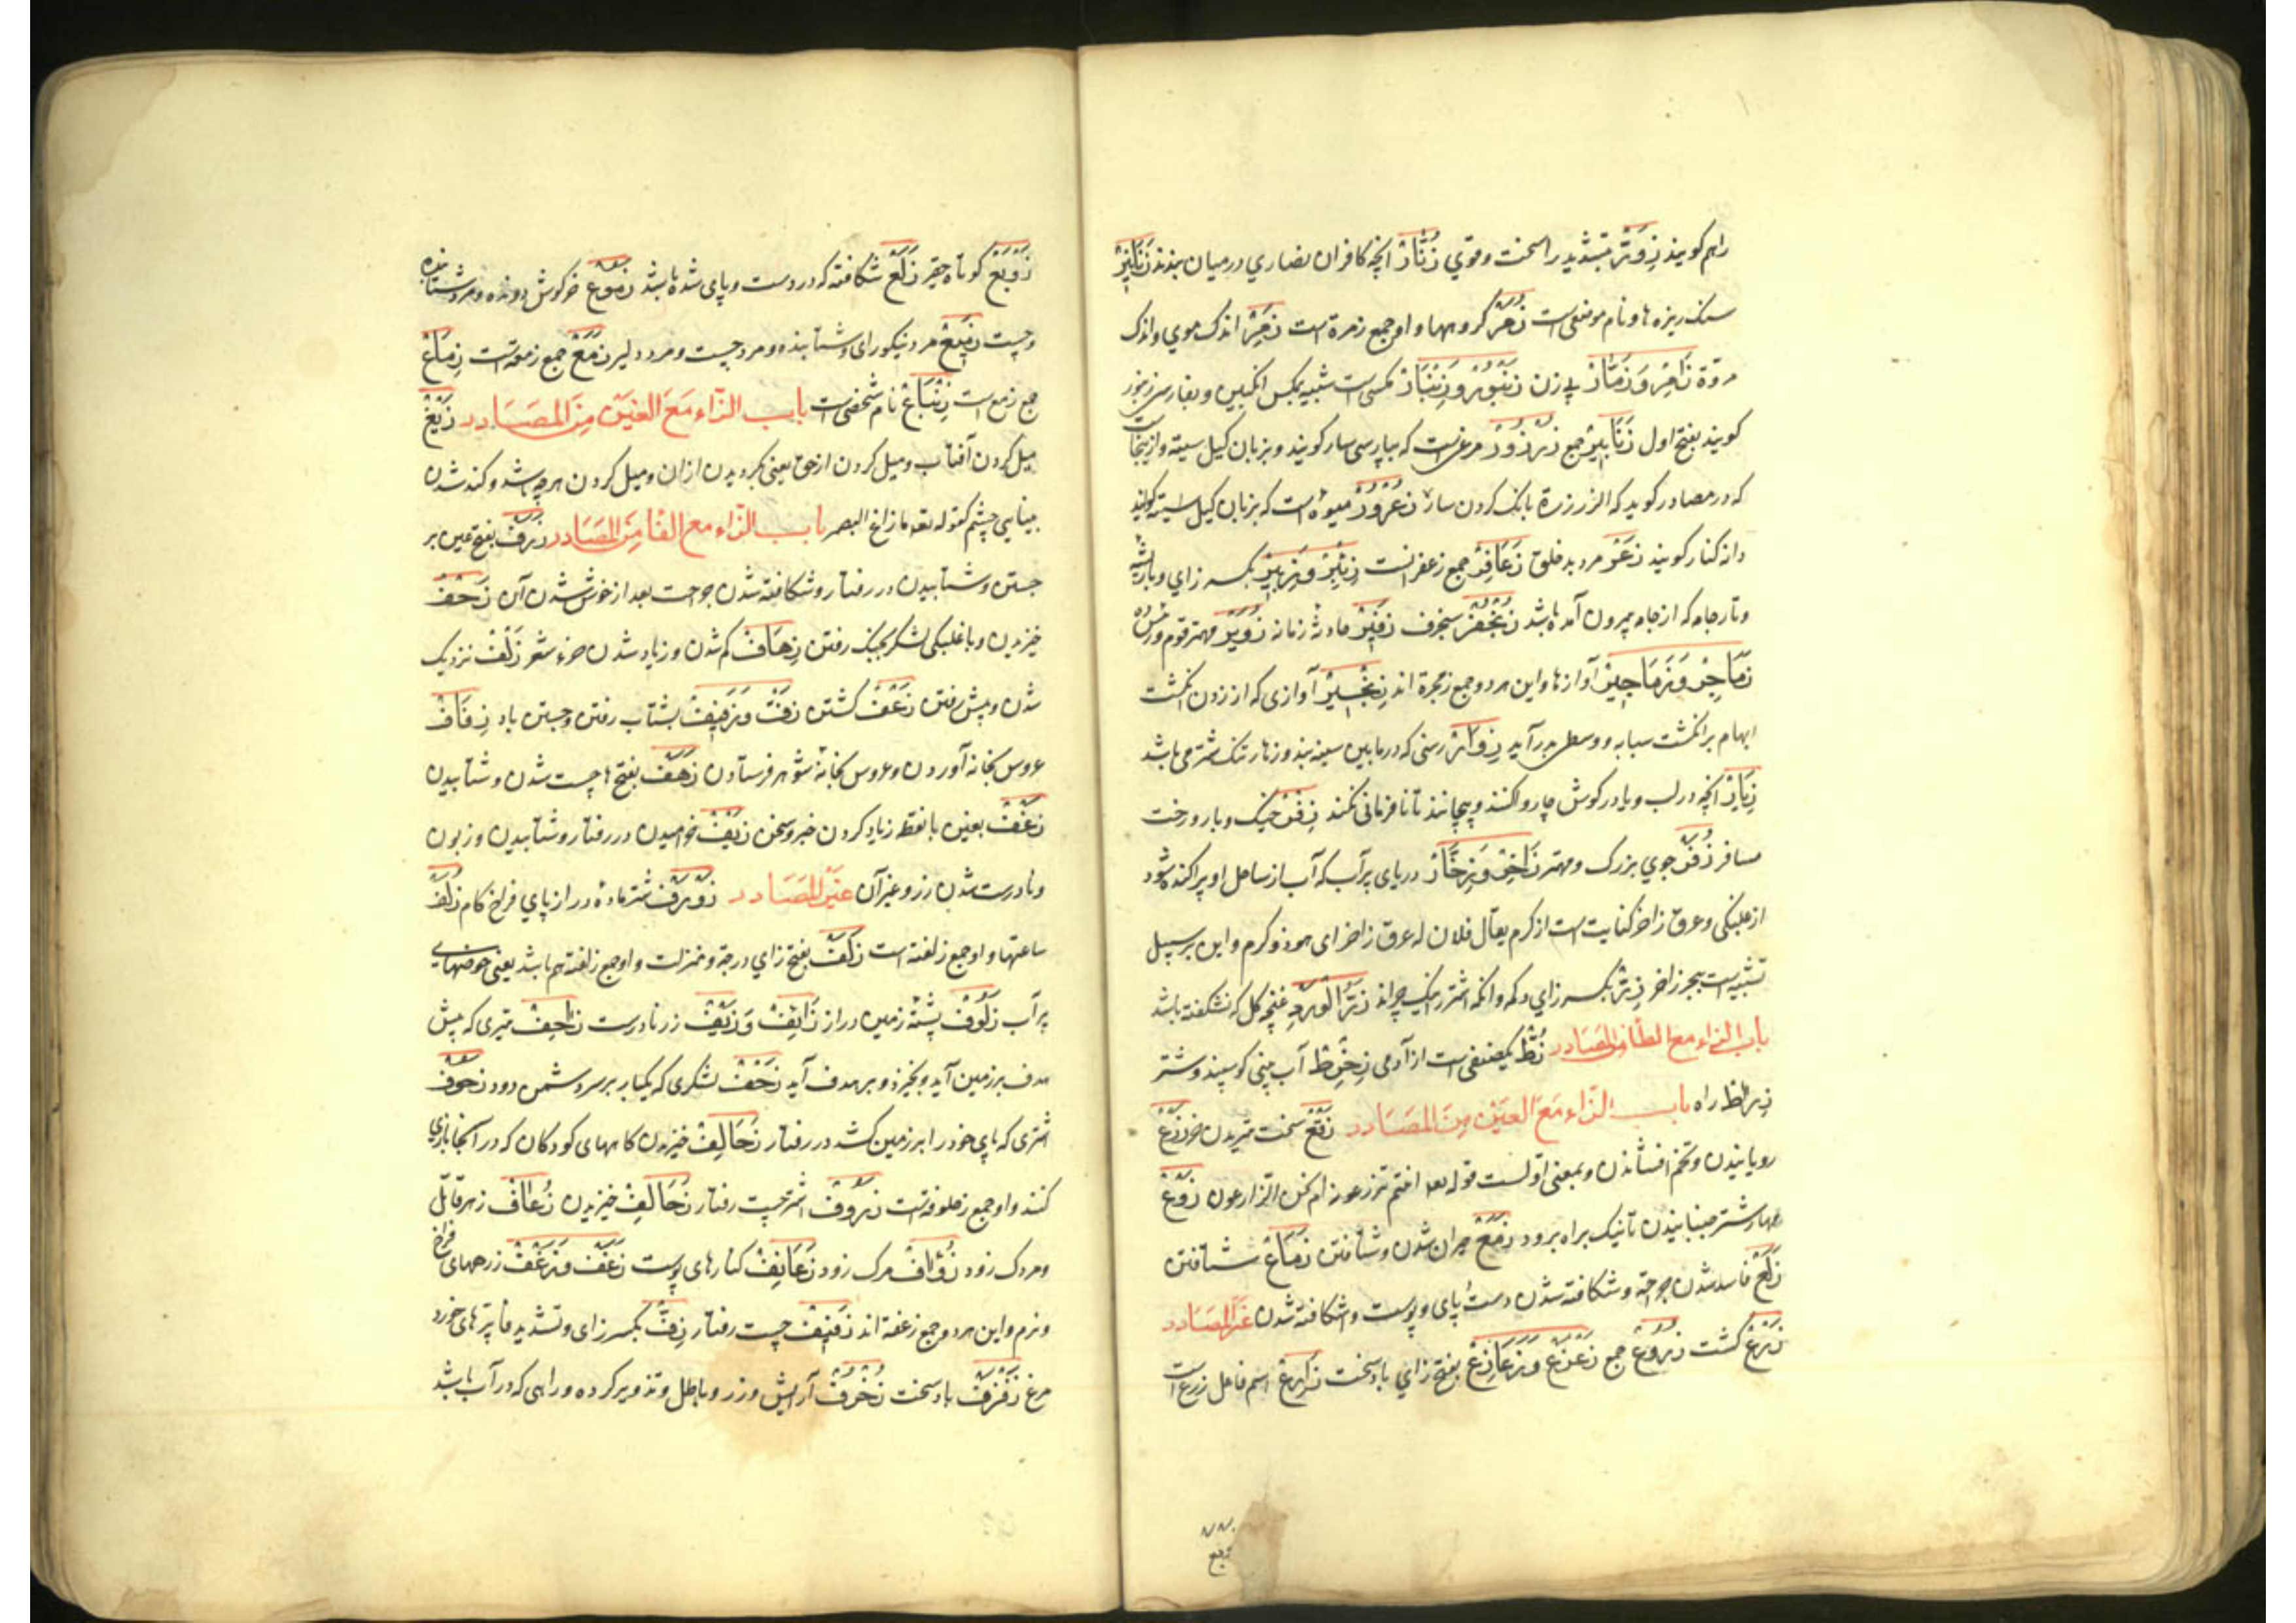 راهم کویند زِوَرٌّ بتشدید را سخت و قوي زُنَّارٌ انچه کافران نصاري در میان بندند زَنَانِیرُ
سنک ریزه ها و نام موضعی است زُمَرٌ کروهها و او جمع زمرة است زَمِرٌ اندک موي و اندک
مروّة زَامِرٌ وَ زَمَّارٌ نی زن زُنبُورٌ وَ زِنبَارٌ مکسی است شبیه بمکس انکبین و بفارسی زنبور
کویند بفتح اول زَنَابِیرُ جمع زُرْزُورٌ مرغی است که بپارسی سار کویند و بزبان کیل سیته و ازینجاست
که در مصادر کوید که الزرزرة بانک کردن سار زُعْرُورٌ میوه است که بزبان کیل کویند
دانه کنار کویند زَعِرٌ مرد بدخلق زَعَافِرُ جمع زعفرانست زِئْبِرٌ بکسر زاي و با ریشه
و تار جامه که از جامه بیرون آمده باشد زُنْجُفْرٌ سنجرف زَفِیرٌ حادثه زمانه زُوَیْرٌ مهتر قوم
زَمَاجِرُ وَ زَمَاجِیرُ آوازها و این هر دو جمع زمجرة اند زِنْجِیرٌ آوازی که از زدن انکشت
ابهام بر انکشت سبابه و وسطی برآید زِوَارٌ رسنی که در مابین سینه بند و زهار تنک شتر می باشد
زِیَارٌ انچه در لب و یا در کوش چاروا کنند و بپیچانند تا نافرمانی نکند زِفْرٌ خیک و بار و رخت
مسافر زُفَرٌ جوي بزرک و مهتر زَاخِرٌ وَ زَخَّارٌ دریای پر آب که آب از ساحل او پراکنده شود
از غلبکی و عرق زاخر کنایت است از کرم یقال فلان له عرق زاخر ای جود و کرم و این بر سبیل
تشبیه است ببحر زاخر زِرٌّ بکسر زاي دکمه و انکه اشتر را نیک چراند زِرُّ الْوَرْدِ غنچه کل که نشکفته باشد
باب الزاء مع الطا من المصادر زُطٌّ یک صنفی است از آدمی زِخْرِطٌ آب بینی کوسپند و شتر
زِرَاطٌ راه باب الزاء مع العین من المصادر زَقْعٌ سخت تیزیدن خر زَرْعٌ
رویانیدن و تخم افشاندن و بمعنی اولست قوله تعه اانتم تزرعونه ام نحن الزارعون زَوْعٌ
مهار شتر جنبانیدن تا نیک براه برود زَمَعٌ حیران شدن و شتافتن زَمَاعٌ شتافتن
زَلَعٌ فاسد شدن جراحة و شکافته شدن دست و پای و پوست و شکافته شدن غیر المصادر
زَرْعٌ کشت زُرُوعٌ جمع زَعْزَعٌ وَ زَعَازِعُ بفتح زاي باد سخت زَارِعٌ اسم فاعل زرع است
زَوْبَعٌ کوتاه حقیر زَلَعٌ شکافته که در دست و پای شده باشد زَمُوعٌ خرکوش دونده و مرد شتابنده
و چست زَمِیعٌ مرد نیکو رای و شتابنده و مرد چست و مرد دلیر زَمَعٌ جمع زمعة است زِمَاعٌ
جمع زمع است زِنْبَاعٌ نام شخصی است باب الزاء مع الغین من المصادر زَیْغٌ
میل کردن آفتاب و میل کردن از حق یعنی بکردیدن از ان و میل کردن هرچه باشد و کند شدن
بینایی چشم کقوله تعه ما زاغ البصر باب الزاء مع الفا من المصادر زَرَفٌ بفتح عین بر
جستن و شتابیدن در رفتار و شکافته شدن جراحت بعد از خوش شدن آن زَحْفٌ
خیزیدن و با غلبکی لشکر بجنک رفتن زِحَافٌ کم شدن و زیاد شدن جزء شعر زَلْفٌ نزدیک
شدن و پیش رفتن زَعْفٌ کشتن زَفٌّ وَ زَفِیفٌ بشتاب رفتن و جستن باد زِفَافٌ
عروس بخانه آوردن و عروس بخانه شوهر فرستادن زَهَفٌ بفتح ها چست شدن و شتابیدن
زَغْفٌ بغین با نقطه زیاد کردن خبر و سخن زَیْفٌ خرامیدن در رفتار و شتابیدن و زبون
و نادرست شدن زر و غیر آن غیر المصادر زَوْرَفٌ شتر ماده دراز پاي فراخ کام زُلَفٌ
ساعتها و او جمع زلفة است زَلَفٌ بفتح زاي درجه و منزلت و او جمع زلفة هم باشد یعنی حوضهای
پر آب زَلُوفٌ پشتۀ زمین دراز زَایِفٌ وَ زَیْفٌ زر نادرست زَاحِفٌ تیری که پیش
هدف بر زمین آید و بخیزد و بر هدف آید زَحْفٌ لشکری که یکبار بر سر دشمن رود زَحُوفٌ
اشتری که پاي خود را بر زمین کشد در رفتار زَحَالِفُ خیزیدن کاههای کودکان که در آنجا بازي
کنند و او جمع زحلوفه است زَرُوفٌ اشتر چست رفتار زُحَالِفُ خیزیدن زُعَافٌ زهر قاتل
و مرک زود زُؤَافٌ مرک زود زَعَانِفُ کنارهای پوست زَغَفٌ وَ زَغْفٌ زرههای فراخ
و نرم و این هر دو جمع زغفة اند زَفِیفٌ چست رفتار زِفٌّ بکسر زای و تشدید فا پرهای خورد
مرغ زَفْزَفٌ باد سخت زُخْرُفٌ آرایش و زر و باطل و تزویر کرده و راهی که در آب باشد
زوبع